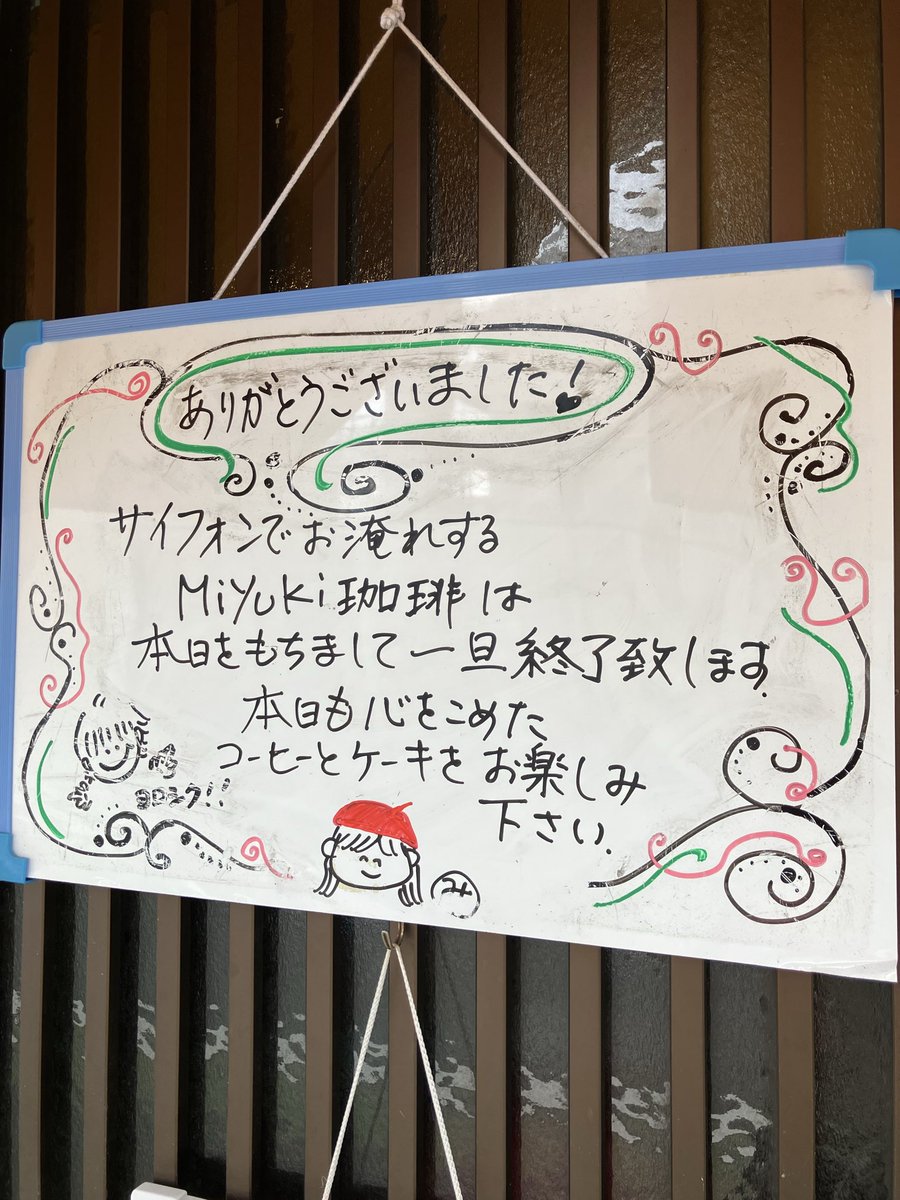 ありがとうございました!
サイフォンでお淹れする
Miyuki珈琲は
本日をもちまして一旦終了致します.
本日も心をこめた
コーヒーとケーキをお楽しみ
下さい.
ヨロシク!!
み